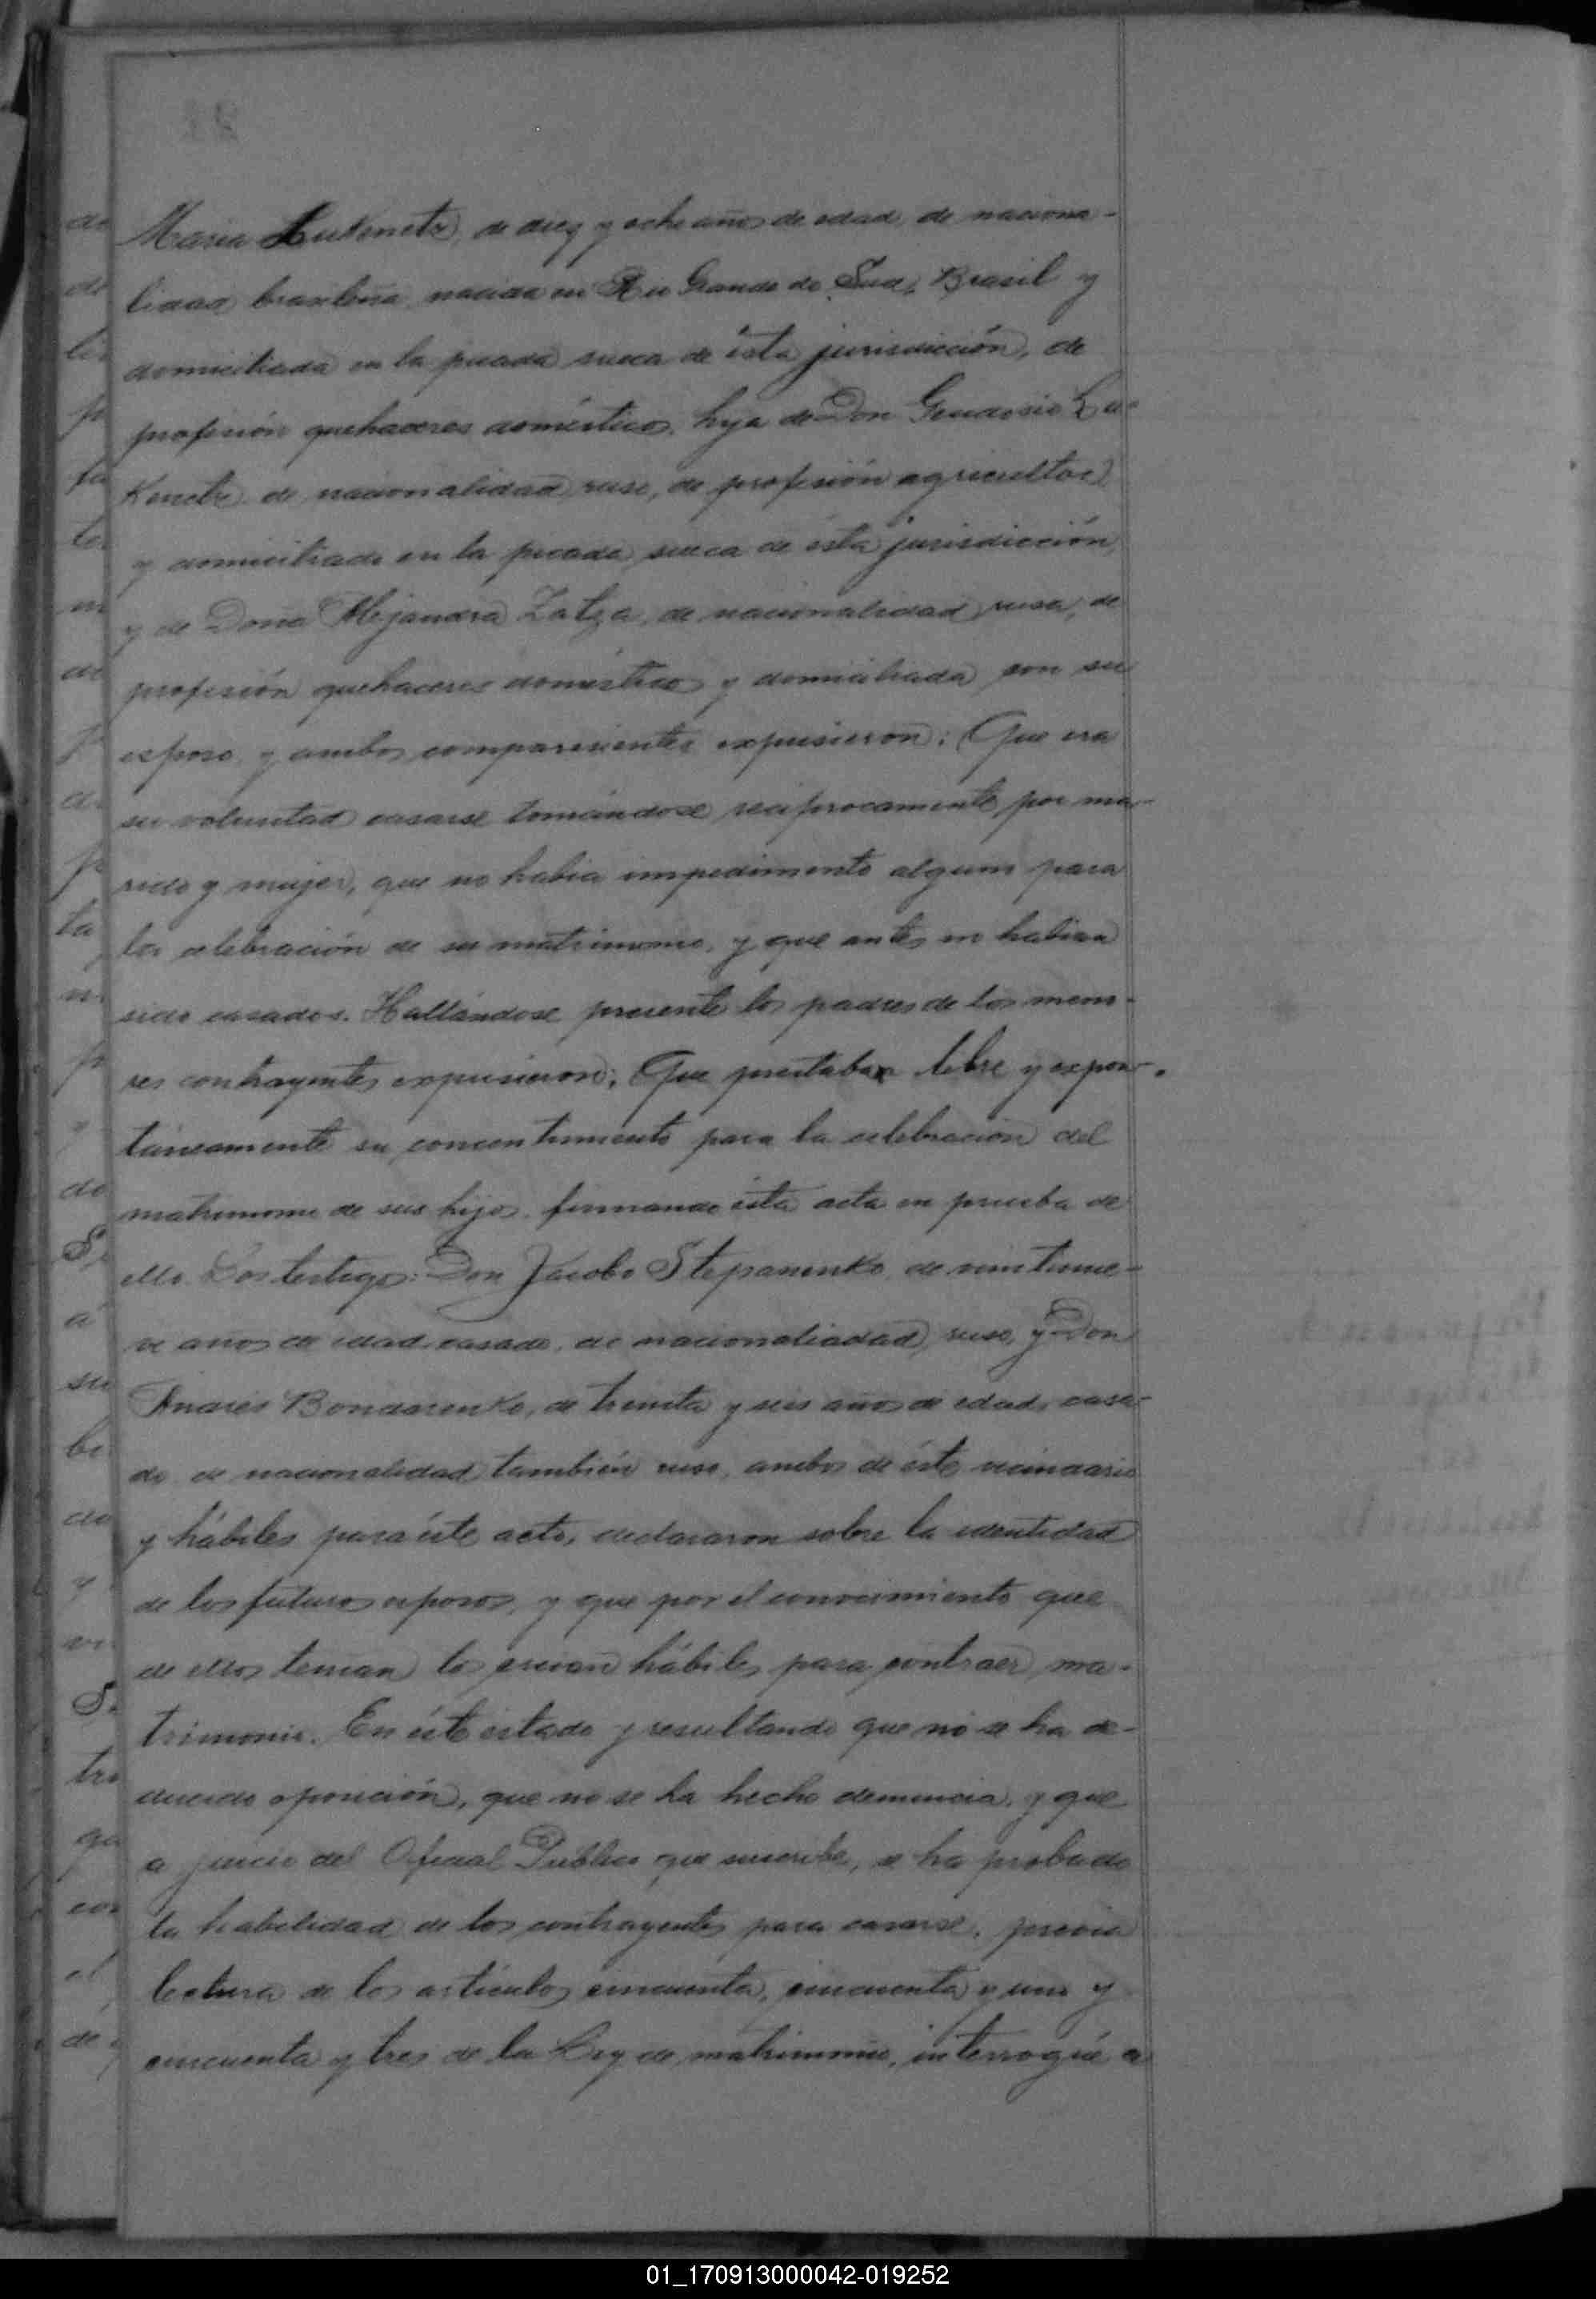 Maria Lukenetz, de diez y ocho años de edad, de naciona-
lidad brasileña, nacida en Rio Grande do Sud, Brasil y
domiciliada en la picada sueca de ésta jurisdicción, de
profesión quehaceres domésticos, hija de Don Genadosio Lu-
Kenetz de nacionalidad ruso, de profesión agricultor
y domiciliado en la picada sueca de ésta jurisdicción,
y de Doña Alejandra Zatza, de nacionalidad rusa, de
profesión quehaceres domésticos y domiciliada con su
esposo, y ambos comparecientes expusieron: Que era
su voluntad casarse tomándose reciprocamente por ma-
rido y mujer, que no habia impedimento alguno para
la celebración de su matrimonio, y que antes no habian
sido casados. Hallándose presente los padres de los meno-
res contrayentes expusieron: Que prestaban libre y expon-
táneamente su concentimiento para la celebración del
matrimonio de sus hijos, firmando ésta acta en prueba de
ello. Los testigos: Don Jacobo Stepanenko, de veintinue-
ve años de edad, casado, de nacionaliadad ruso, y Don
Andrés Bondarenko, de treinta y seis años de edad, casa-
do de nacionalidad también ruso, ambos de éste vecindario
y hábiles para éste acto, declararon sobre la identidad
de los futuros esposos, y que por el conocimiento que
de ellos tenian los creian hábiles para contraer ma-
trimonio. En éste estado y resultando que no se ha de-
ducido oposición, que no se ha hecho denuncia, y que
a juicio del Oficial Público que suscribe, se ha probado
la habilidad de los contrayentes para casarse, previa
lectura de los artículos cincuenta, cincuenta y uno y
cincuenta y tres de la Ley de matrimonio, interrogué a
01_170913000042-019252